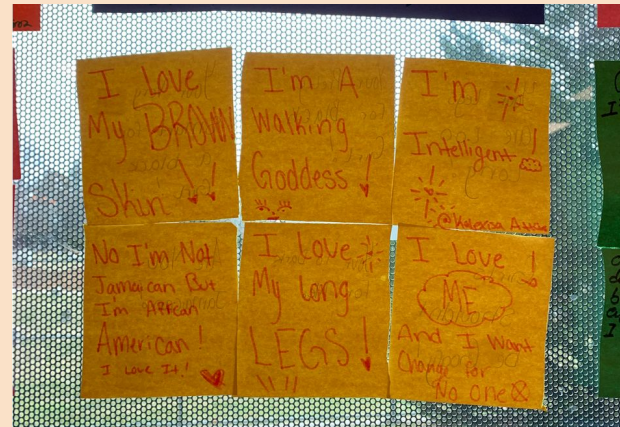 I Love
My BROWN
Skin !!
I'm A
Walking
Goddess !
I'm
Intelligent !
No I'm Not
Jamaican But
I'm African
American !
I Love It!
I Love
My Long
LEGS !
I Love !
ME
And I Want
Change for
No One